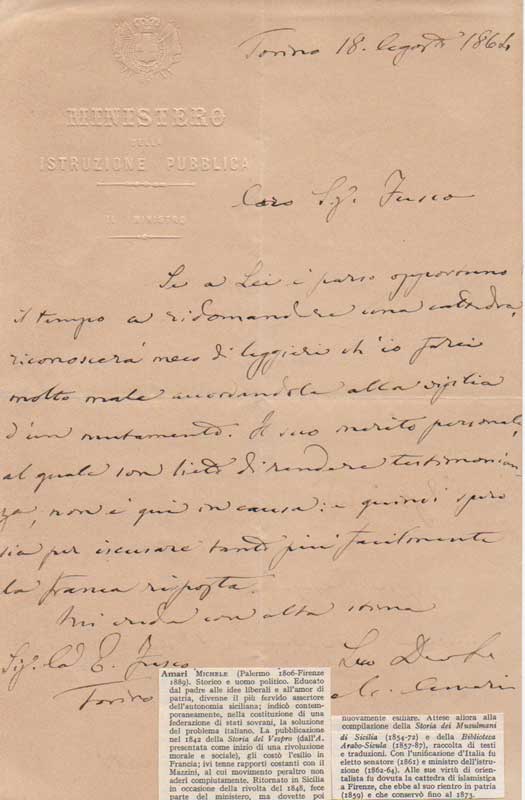 MINISTERO
DELLA
ISTRUZIONE PUBBLICA
IL MINISTRO
Torino 18. Agosto 1864
Caro Sig. Fusco
Se a Lei è parso opportuno
il tempo a ridomandare una cattedra,
riconoscerà meco di leggieri ch'io farei
molto male accordandola alla vigilia
d'un mutamento. Il suo merito personale,
al quale son lieto di rendere testimonian
za, non è qui in causa: e quindi spero
sia per iscusare tanto più facilmente
la franca risposta.
Mi creda con alta stima
Sig. E. Fusco
Suo
Torino
M. Amari
Amari MICHELE (Palermo 1806-Firenze
1889). Storico e uomo politico. Educato
dal padre alle idee liberali e all'amor di
patria, divenne il più fervido assertore
dell'autonomia siciliana; indicò contem-
poraneamente, nella costituzione di una
federazione di stati sovrani, la soluzione
del problema italiano. La pubblicazione
nel 1842 della Storia del Vespro (dall'A.
presentata come inizio di una rivoluzione
morale e sociale), gli costò l'esilio in
Francia; ivi tenne rapporti costanti con il
Mazzini, al cui movimento peraltro non
aderì compiutamente. Ritornato in Sicilia
in occasione della rivolta del 1848, fece
parte del ministero, ma dovette poi
nuovamente esiliare. Attese allora alla
compilazione della Storia dei Musulmani
di Sicilia (1854-72) e della Biblioteca
Arabo-Sicula (1857-87), raccolta di testi
e traduzioni. Con l'unificazione d'Italia fu
eletto senatore (1861) e ministro dell'istru-
zione (1862-64). Alle sue virtù di orien-
talista fu dovuta la cattedra di islamistica
a Firenze, che ebbe al suo rientro in patria
(1859) e che conservò fino al 1873.